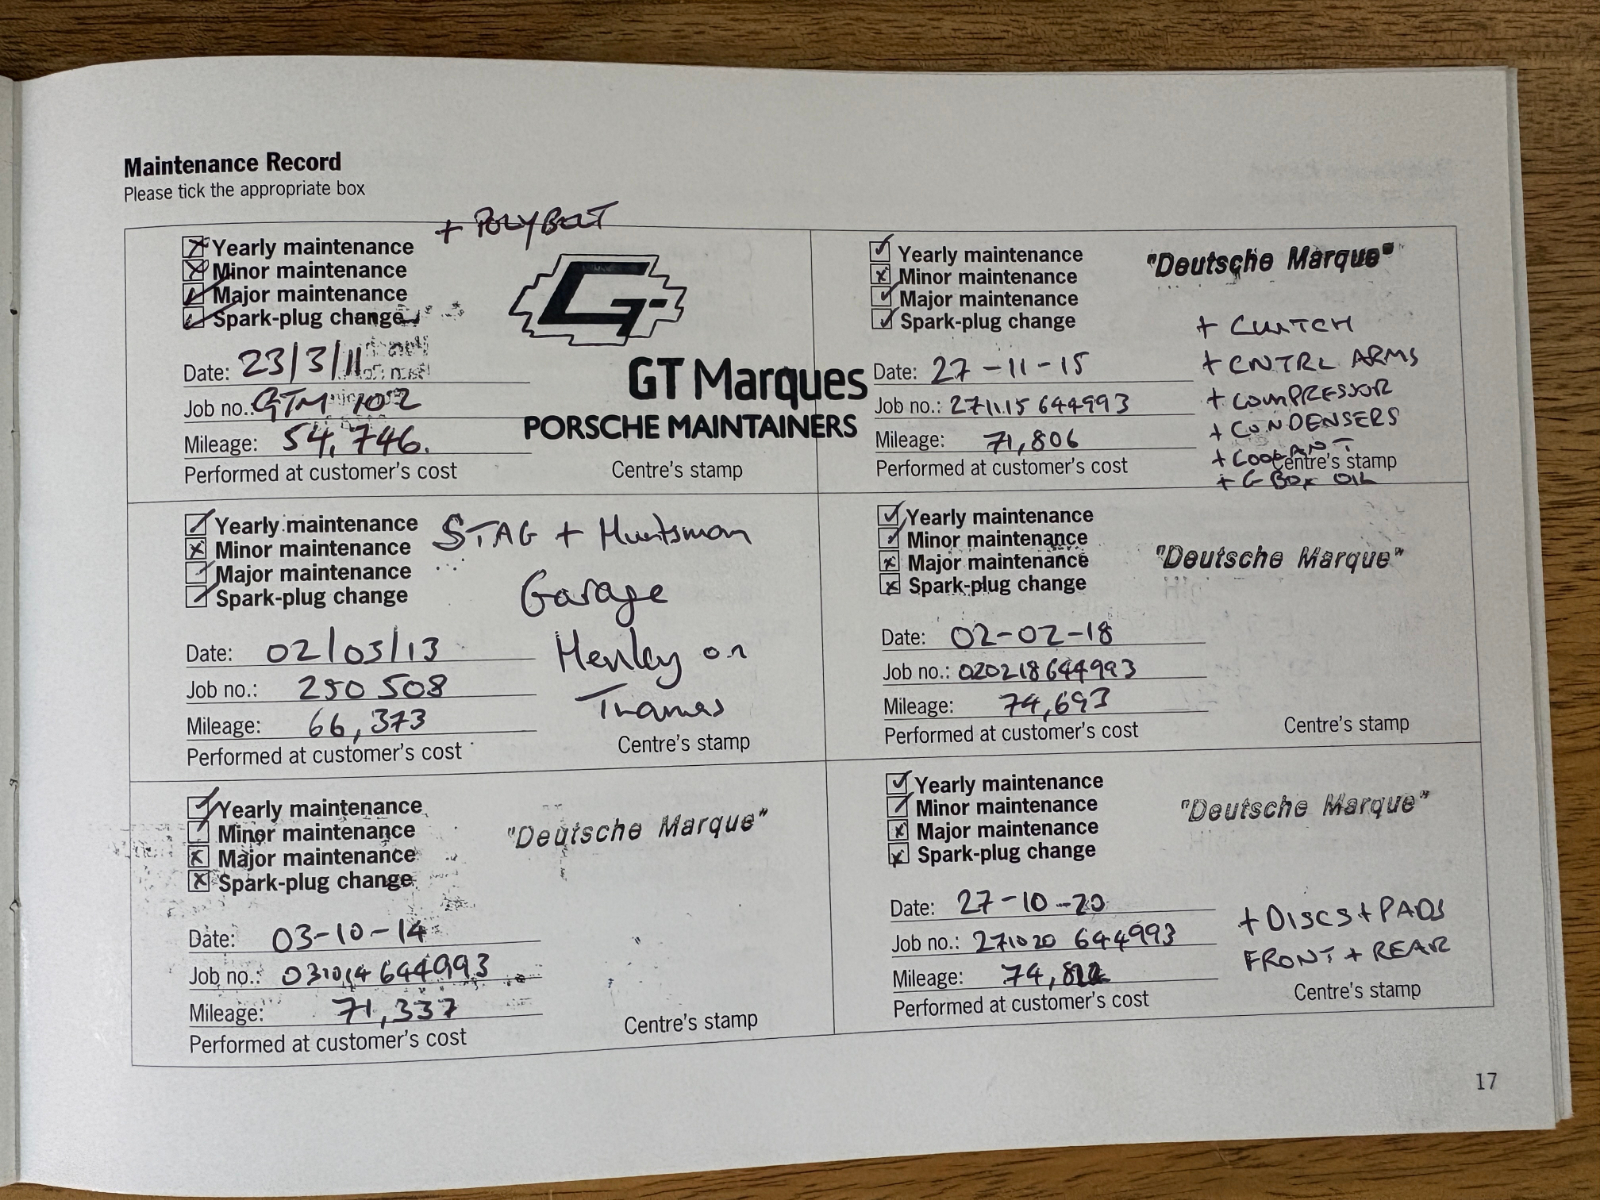 Maintenance Record
Please tick the appropriate box
+ POLYBELT
Yearly maintenance
Minor maintenance
Major maintenance
Spark-plug change
G
GT Marques
PORSCHE MAINTAINERS
Date: 23/3/11
Job no.: GTM 102
Mileage: 54,746.
Performed at customer's cost
Centre's stamp
Yearly maintenance
Minor maintenance
Major maintenance
Spark-plug change
STAG + Huntsman
Garage
Henley on
Thames
Date: 02/05/13
Job no.: 250 508
Mileage: 66,373
Performed at customer's cost
Centre's stamp
Yearly maintenance
Minor maintenance
Major maintenance
Spark-plug change
"Deutsche Marque"
Date: 03-10-14
Job no.: 031014 644993
Mileage: 71,337
Performed at customer's cost
Centre's stamp
Yearly maintenance
Minor maintenance
Major maintenance
Spark-plug change
"Deutsche Marque"
+ CLUTCH
+ CNTRL ARMS
+ COMPRESSOR
+ CONDENSERS
+ COOLANT
+ G BOX OIL
Date: 27-11-15
Job no.: 271115 644993
Mileage: 71,806
Performed at customer's cost
Centre's stamp
Yearly maintenance
Minor maintenance
Major maintenance
Spark-plug change
"Deutsche Marque"
Date: 02-02-18
Job no.: 020218644993
Mileage: 74,693
Performed at customer's cost
Centre's stamp
Yearly maintenance
Minor maintenance
Major maintenance
Spark-plug change
"Deutsche Marque"
Date: 27-10-20
Job no.: 271020 644993
Mileage:
+ DISCS + PADS
FRONT + REAR
Performed at customer's cost
Centre's stamp
17